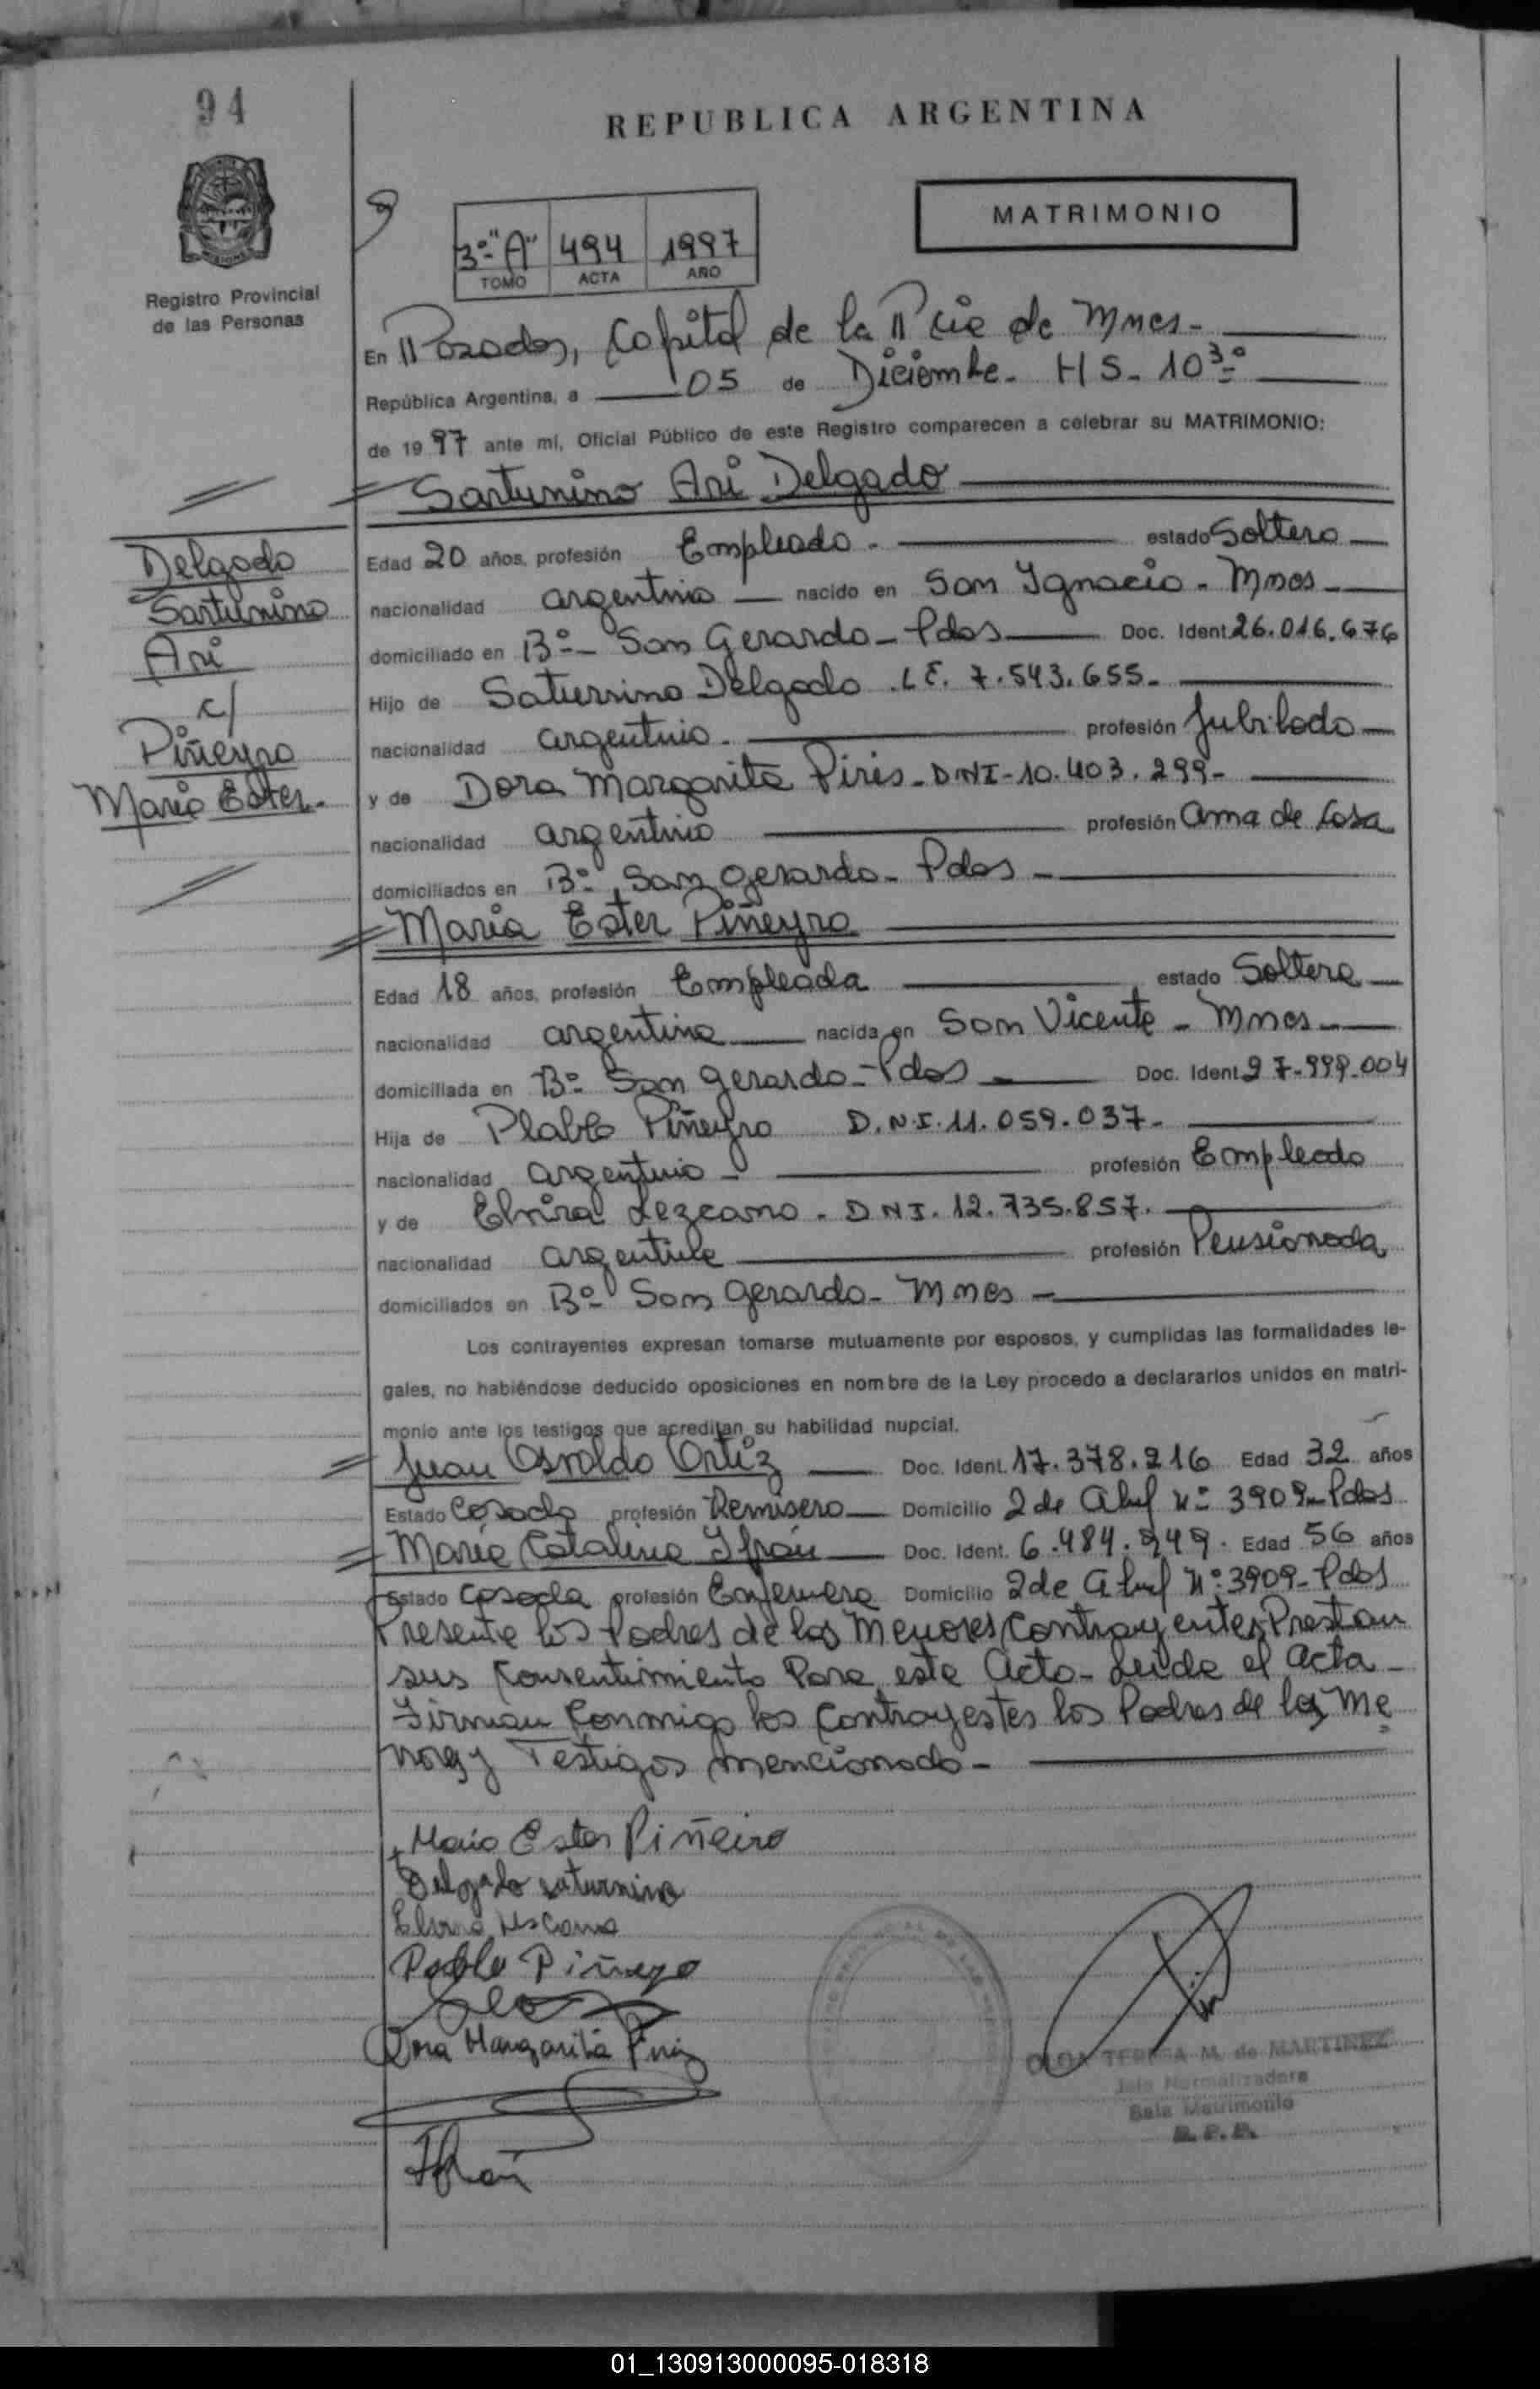 94
REPUBLICA ARGENTINA
MATRIMONIO
3º "A" 494 1997
TOMO ACTA AÑO
Registro Provincial
de las Personas
En Posadas, Capital de la Pcia de Mnes-
República Argentina, a 05 de Diciembre- HS- 10³º
de 1997 ante mí, Oficial Público de este Registro comparecen a celebrar su MATRIMONIO:
Sarturnino Ari Delgado
Delgado
Sarturnino
Ari
c/
Piñeyro
María Ester-
Edad 20 años, profesión Empleado- estado Soltero
nacionalidad argentina nacido en San Ignacio- Mnes-
domiciliado en Bº- San Gerardo- Pdas Doc. Ident. 26.016.676
Hijo de Saturnino Delgado .L E. 7.543.655-
nacionalidad argentina- profesión Jubilado
y de Dora Margarita Piris- DNI-10.403.299-
nacionalidad argentina profesión ama de casa
domiciliados en Bº San Gerardo- Pdas-
María Ester Piñeyro
Edad 18 años, profesión Empleada estado Soltera
nacionalidad argentina nacida en San Vicente- Mnes-
domiciliada en Bº San Gerardo- Pdas- Doc. Ident. 27-999-004
Hija de Plablo Piñeyro D.N.I. 11.059.037-
nacionalidad argentina- profesión Empleado
y de Elvira Lezcano- DNI. 12.735.857.
nacionalidad argentina profesión Pensionada
domiciliados en Bº- San Gerardo- Mnes-
Los contrayentes expresan tomarse mutuamente por esposos, y cumplidas las formalidades le-
gales, no habiéndose deducido oposiciones en nombre de la Ley procedo a declararlos unidos en matri-
monio ante los testigos que acreditan su habilidad nupcial.
Juan Osvaldo Ortiz Doc. Ident. 17.378.216 Edad 32 años
Estado Casado profesión Remisero Domicilio 2 de Abril Nº 3909- Pdas
María Catalina Ifrán Doc. Ident. 6.484.949. Edad 56 años
Estado Casada profesión Enfermera Domicilio 2 de Abril Nº 3909- Pdas
Presente los Padres de los Menores Contrayentes Prestan
sus Consentimiento Para este Acto- Leida el Acta-
Firman Conmigo los Contrayestes los Padres de los Me
nores y Testigos mencionado-
María Ester Piñeiro
Delgado saturnino
Elvira Lescano
Pablo Piñeyo
Dora Margarita Piriz
Ifrán
OLGA TERESA M. de MARTINEZ
Jefa Normalizadora
Sala Matrimonio
R. P. P.
01_130913000095-018318